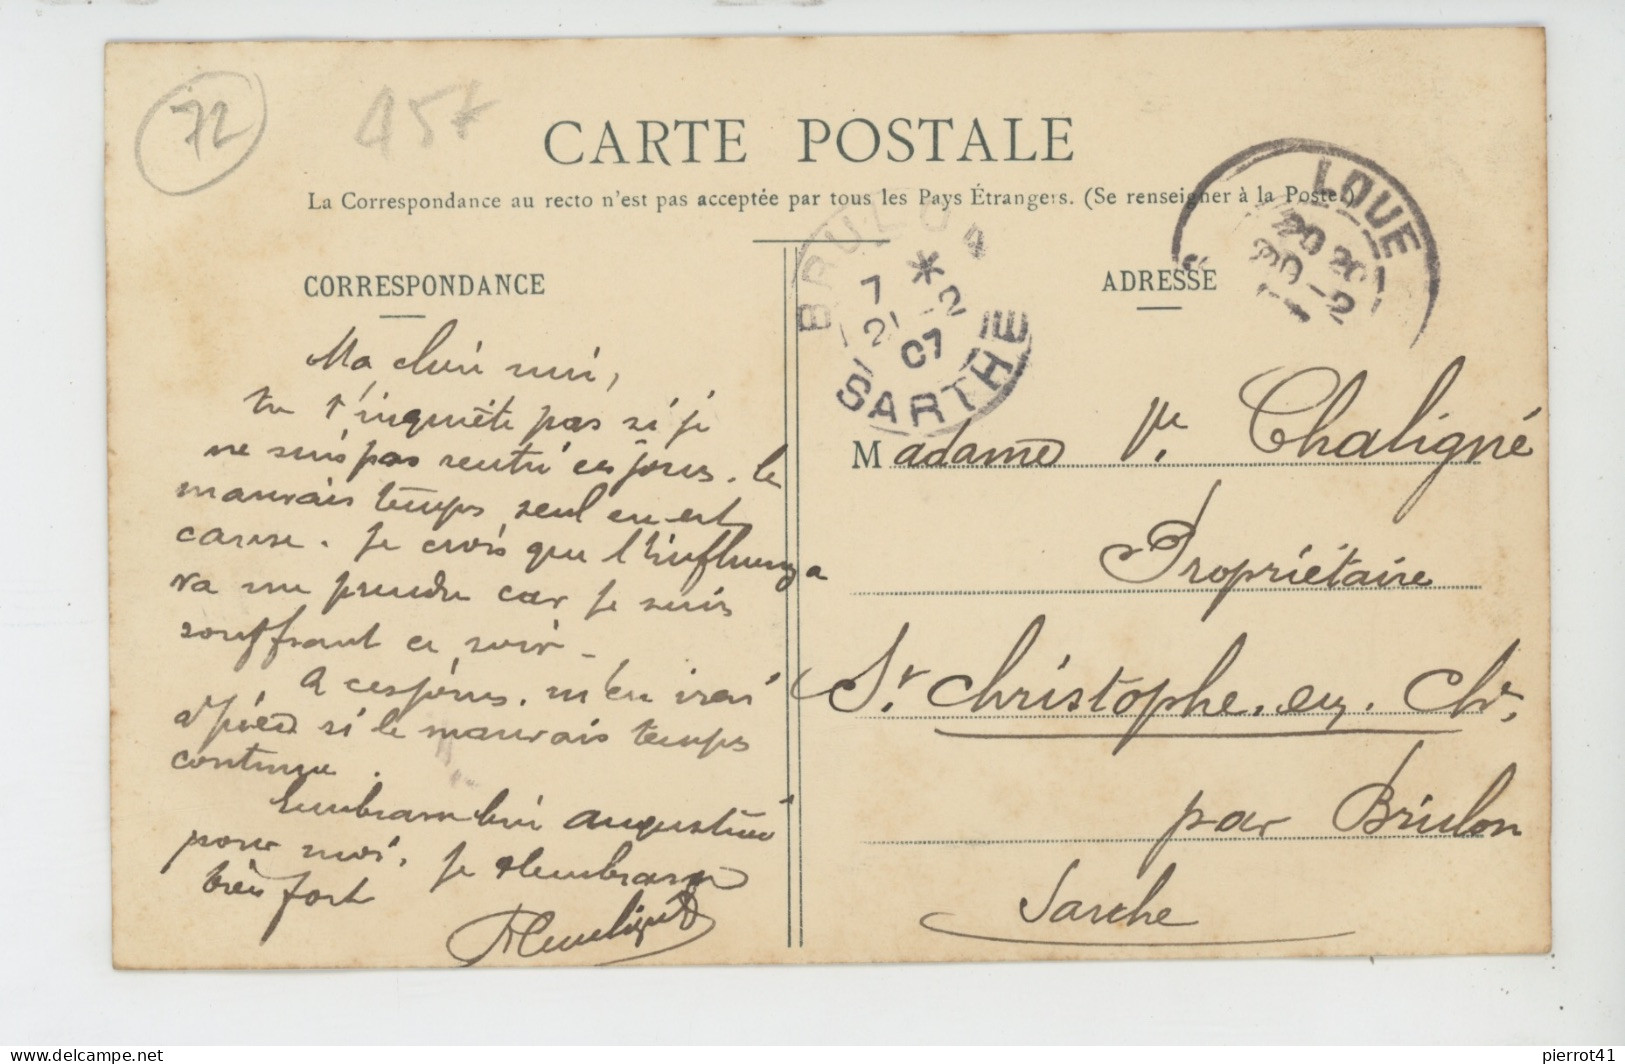 72
457
CARTE POSTALE
La Correspondance au recto n'est pas acceptée par tous les Pays Étrangers. (Se renseigner à la Poste.)
CORRESPONDANCE
ADRESSE
BRULON
7 * 4
21 -2
07
SARTHE
LOUE
20 20
20 -2
Ma
tu t'inquiète pas si je
ne suis pas rentré ces jours. le
mauvais temps seul en est
cause. Je crois que l'influenza
va me prendre car je suis
souffrant ce soir _
A ces jours. m'en irai
à pied si le mauvais temps
continue.
Embrasse bien augustine
pour moi. Je t'embrasse
bien fort
Madame Ve Chaligné
Propriétaire
St. Christophe. en. Ch.
par Brulon
Sarthe
pierrot41
delcampe.net